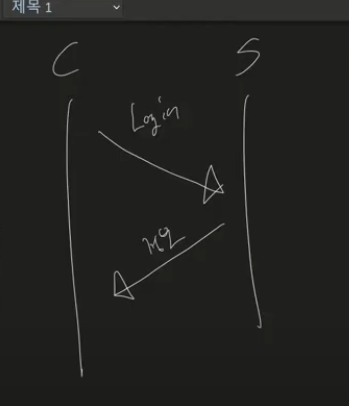 제목 1
C S
Login